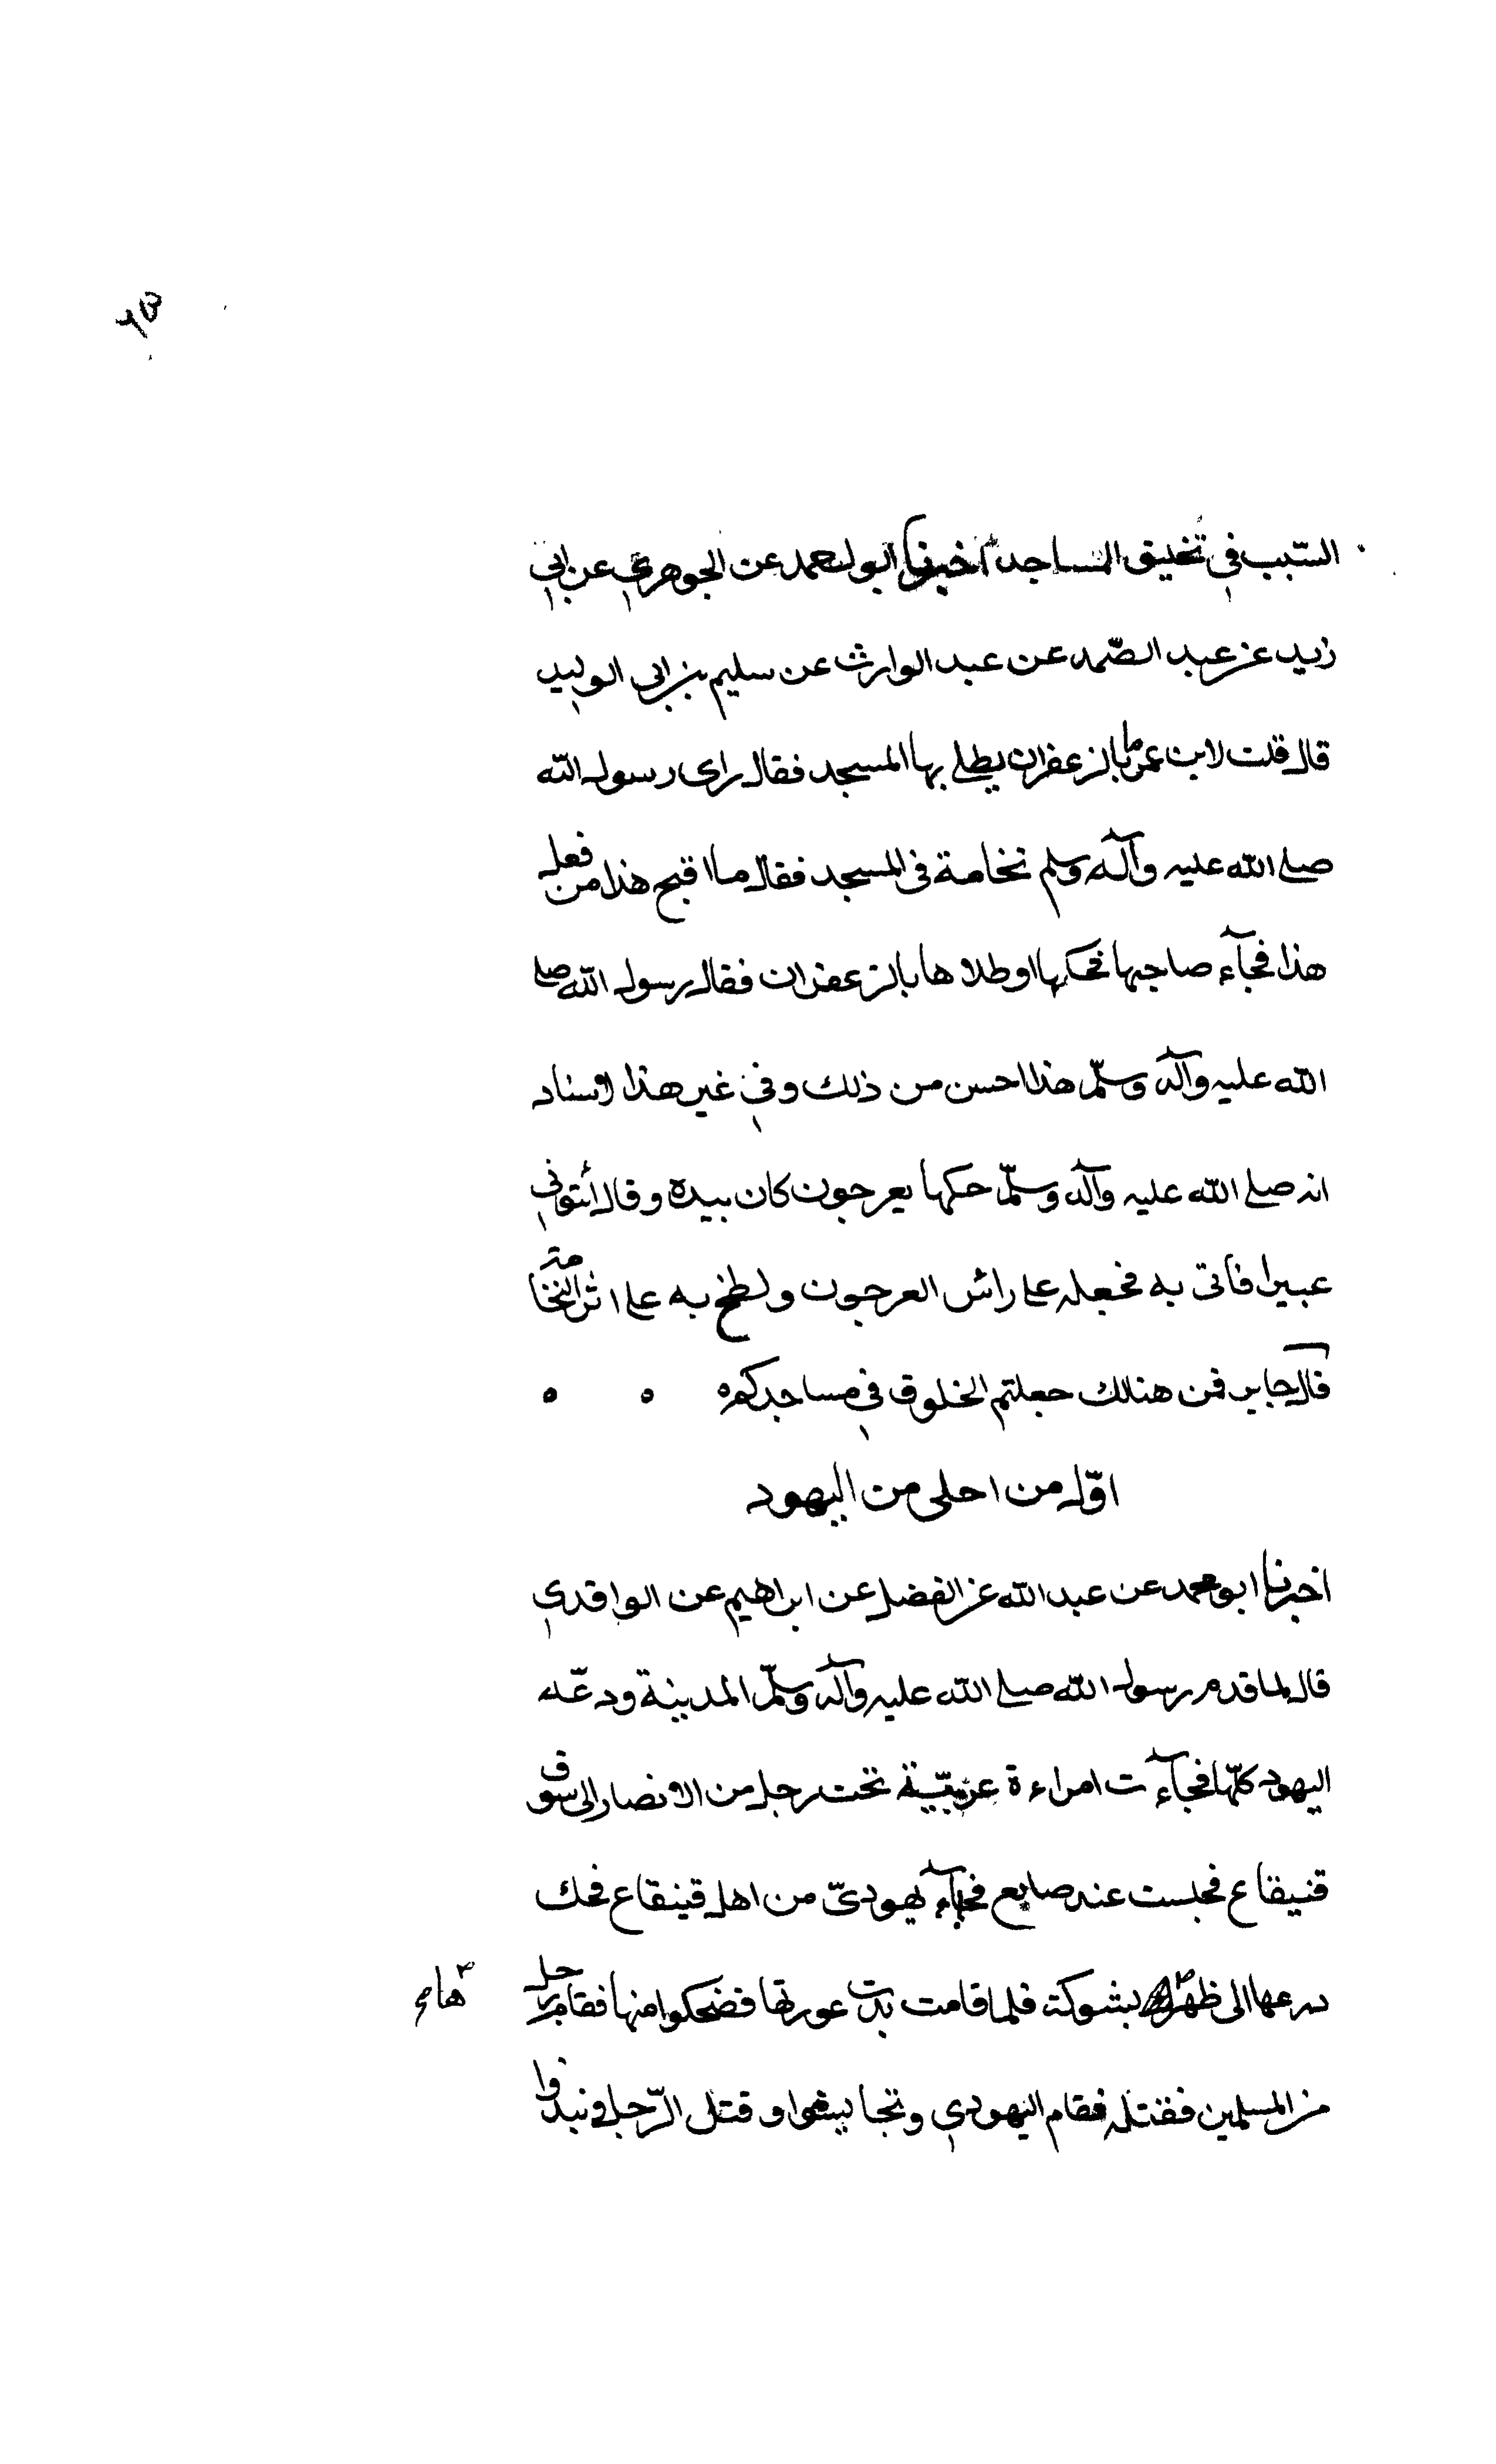 السّبب في تخليق المساجد اخبرنا ابو احمد عن الجوهري عن ابي
زيد عن عبد الصّمد عن عبد الوارث عن سليم بن ابي الوليد
قال قلت لابن عمر ما بالزعفران يطلى بها المسجد فقال راى رسول الله
صلى الله عليه وآله وسلم نخامة في المسجد فقال ما اقبح هذا من فعل
هذا فجآء صاحبها فحكها وطلاها بالزعفران فقال رسول الله صلى
الله عليه وآله وسلّم هذا احسن من ذلك وفي غير هذا الاسناد
انه صلى الله عليه وآله وسلّم حكها بعرجون كان بيده وقال أئتوني
عبيرا فاتى به فجعله على رأس العرجون ولطخ به على اثر النخامة
قال جابر فمن هنالك جعلتم الخلوق في مساجدكم
اوّل من اجلى من اليهود
اخبرنا ابو محمد عن عبد الله عن الفضل عن ابراهيم عن الواقدي
قال لما قدم رسول الله صلى الله عليه وآله وسلّم المدينة ودعّه
اليهود كلّها فجآءت امراءة عربيّة تحت رجل من الانصار الى سوق
قنيقاع فجلست عند صايع فجآء يهوديّ من اهل قينقاع فحك
درعها الى ظهرها بشوكة فلما قامت بدت عورتها فضحكوا منها فقام رجل
من المسلمين فقتله فقام اليهودي وتجايشوا وقتل الرّجل ونبذوا